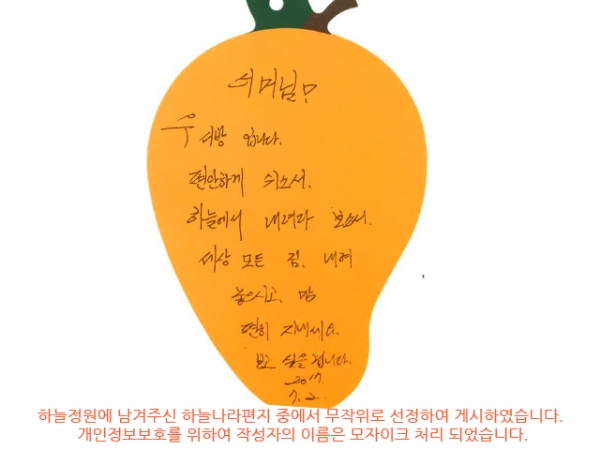 어머님!
우 서방 입니다.
편안하게 쉬소서.
하늘에서 내려다 보소서.
세상 모든 짐, 내려
놓으시고, 맘
편히 지내세요.
보고 싶을 겁니다.
2017.
7. 2.
하늘정원에 남겨주신 하늘나라편지 중에서 무작위로 선정하여 게시하였습니다.
개인정보보호를 위하여 작성자의 이름은 모자이크 처리 되었습니다.